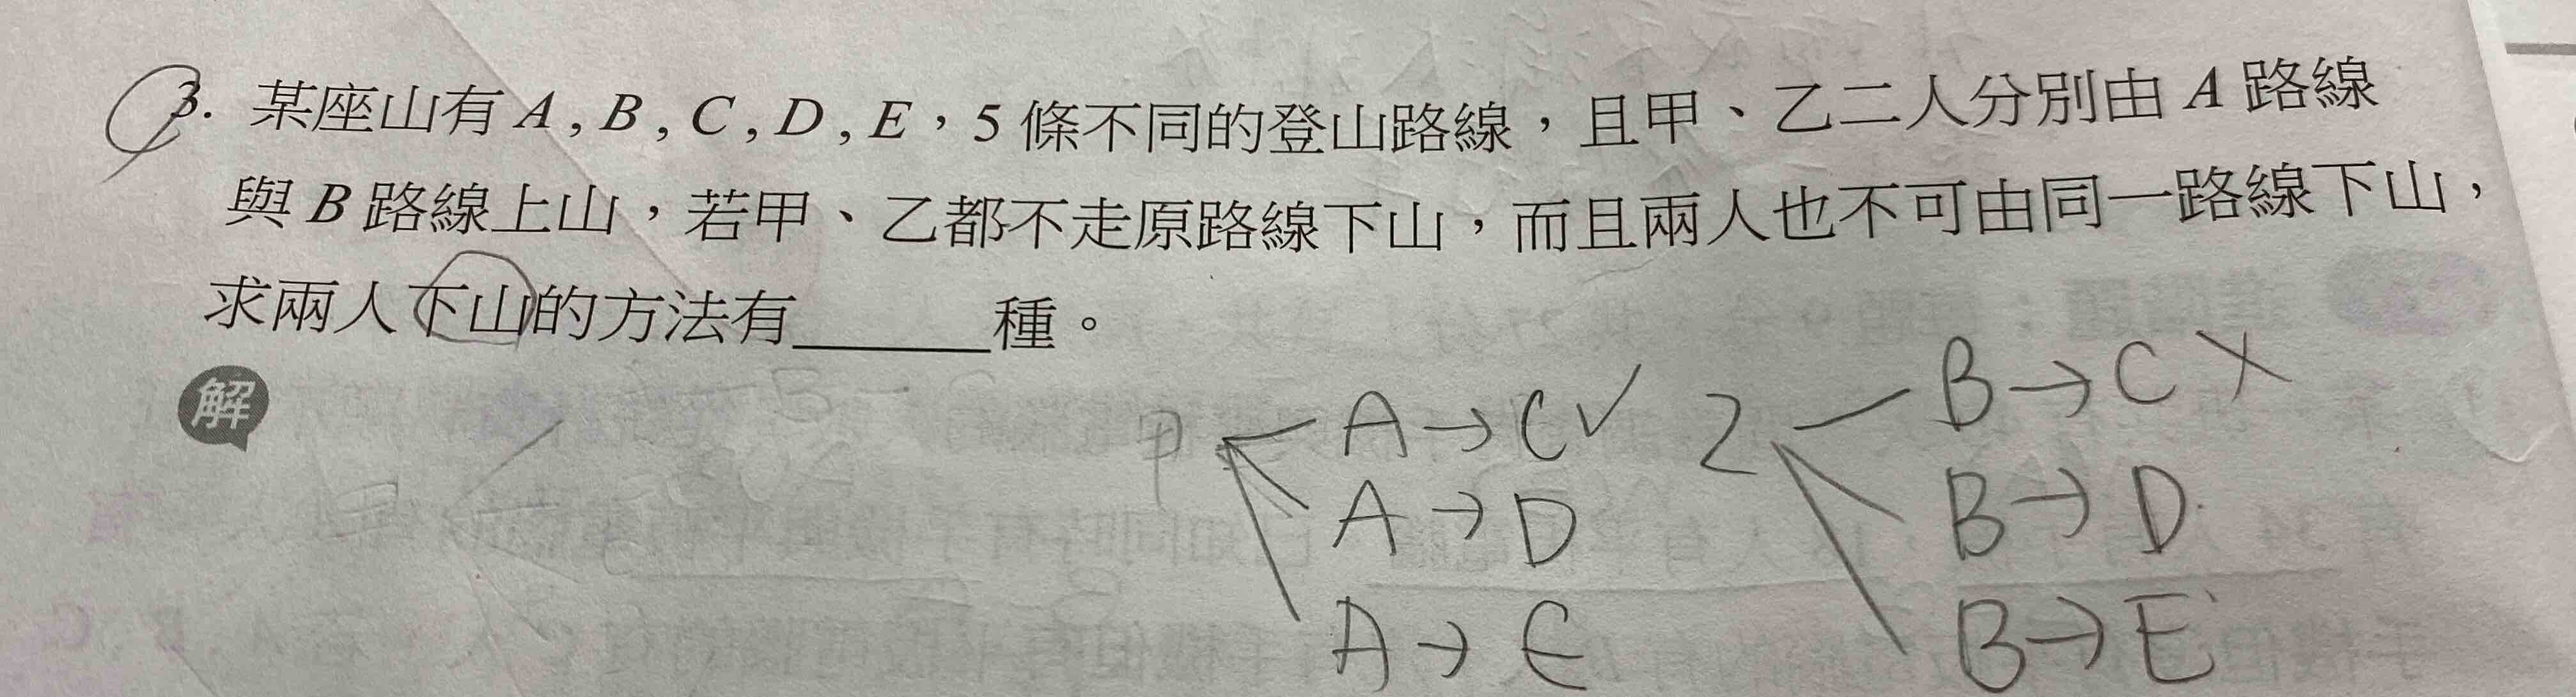 3. 某座山有 A , B , C , D , E，5 條不同的登山路線，且甲、乙二人分別由 A 路線
與 B 路線上山，若甲、乙都不走原路線下山，而且兩人也不可由同一路線下山，
求兩人下山的方法有______種。
解
甲 A→C✓ 乙 B→C X
A→D B→D
A→E B→E